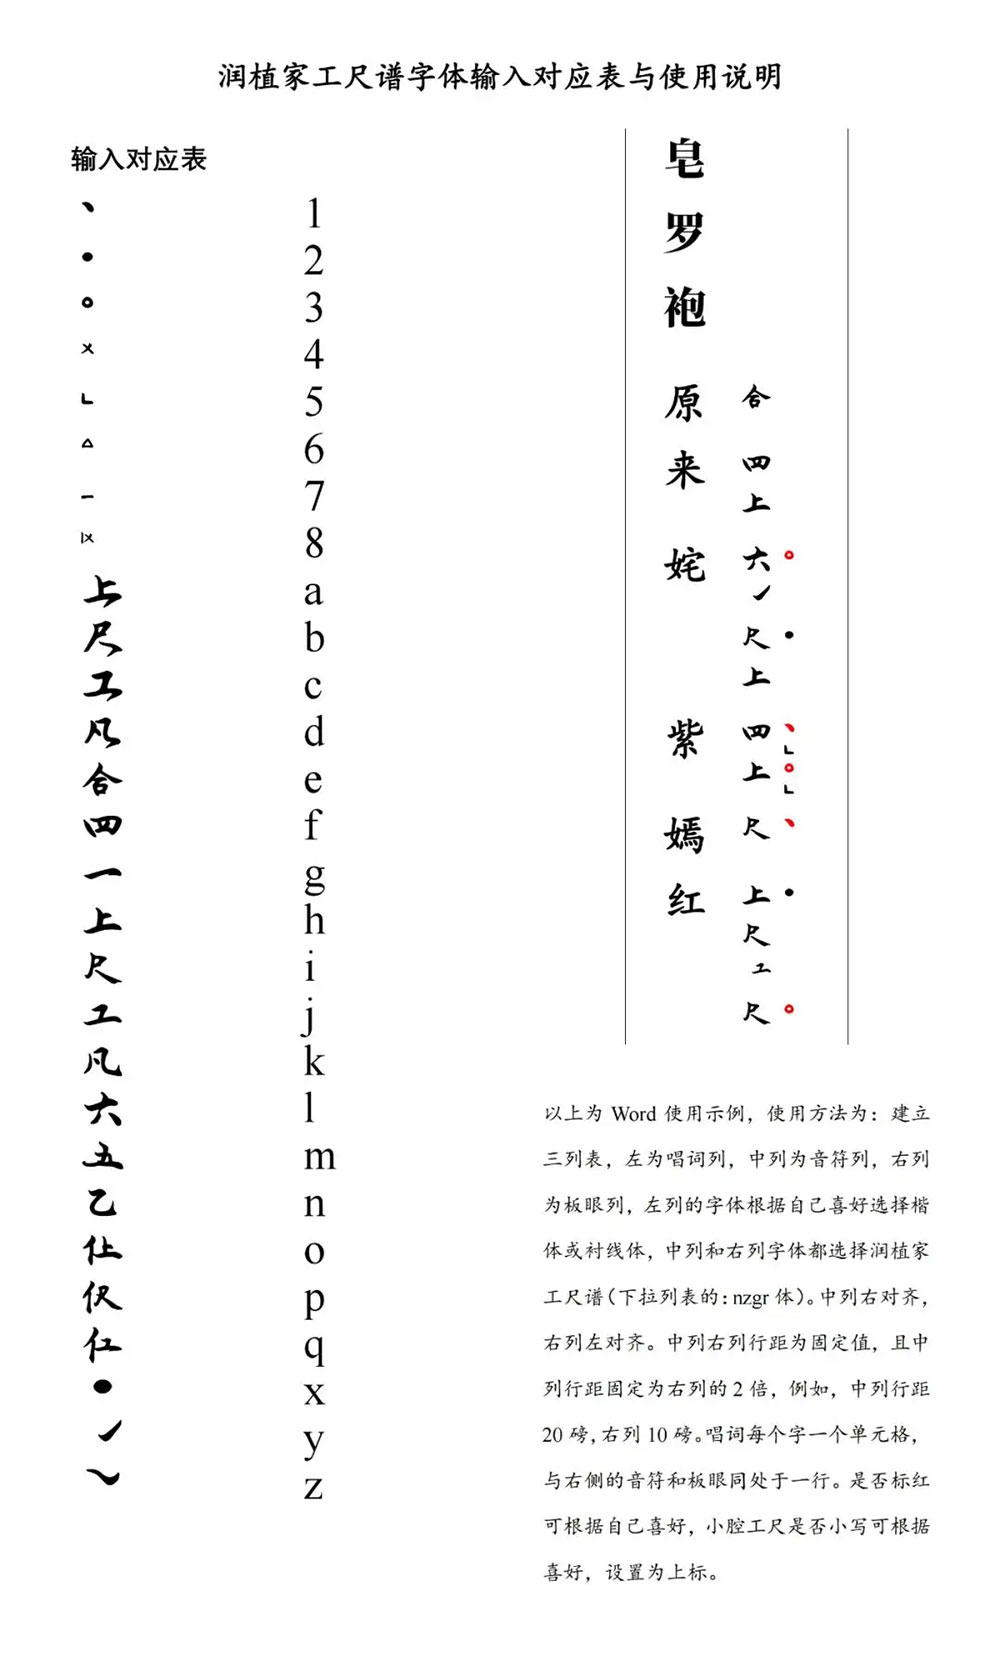 润植家工尺谱字体输入对应表与使用说明
输入对应表
、 1
• 2
∘ 3
× 4
∟ 5
△ 6
一 7
|× 8
上 a
尺 b
工 c
凡 d
合 e
四 f
一 g
上 h
尺 i
工 j
凡 k
六 l
五 m
乙 n
仩 o
伬 p
仜 q
• x
㇀ y
~ z
皂罗袍
原 合
来 四
上
姹 六 ∘
㇀
尺 •
上
紫 四 、
∟
上 ∘
∟
嫣 尺 、
红 上 •
尺
工
尺 ∘
以上为 Word 使用示例，使用方法为：建立
三列表，左为唱词列，中列为音符列，右列
为板眼列，左列的字体根据自己喜好选择楷
体或衬线体，中列和右列字体都选择润植家
工尺谱（下拉列表的：nzgr 体）。中列右对齐，
右列左对齐。中列右列行距为固定值，且中
列行距固定为右列的 2 倍，例如，中列行距
20 磅，右列 10 磅。唱词每个字一个单元格，
与右侧的音符和板眼同处于一行。是否标红
可根据自己喜好，小腔工尺是否小写可根据
喜好，设置为上标。